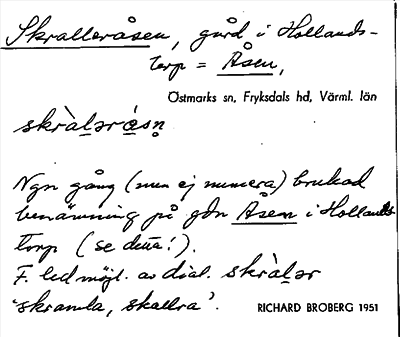 Skralleråsen, gård i Hollands-
torp = Åsen,
Östmarks sn, Fryksdals hd, Värml. län
skràḷərå̀sn̥
Ngn gång (men ej numera) brukad
benämning på gdn Åsen i Hollands-
torp (se detta!).
F. led möjl. av dial. skràḷər
'skramla, skallra'.
RICHARD BROBERG 1951